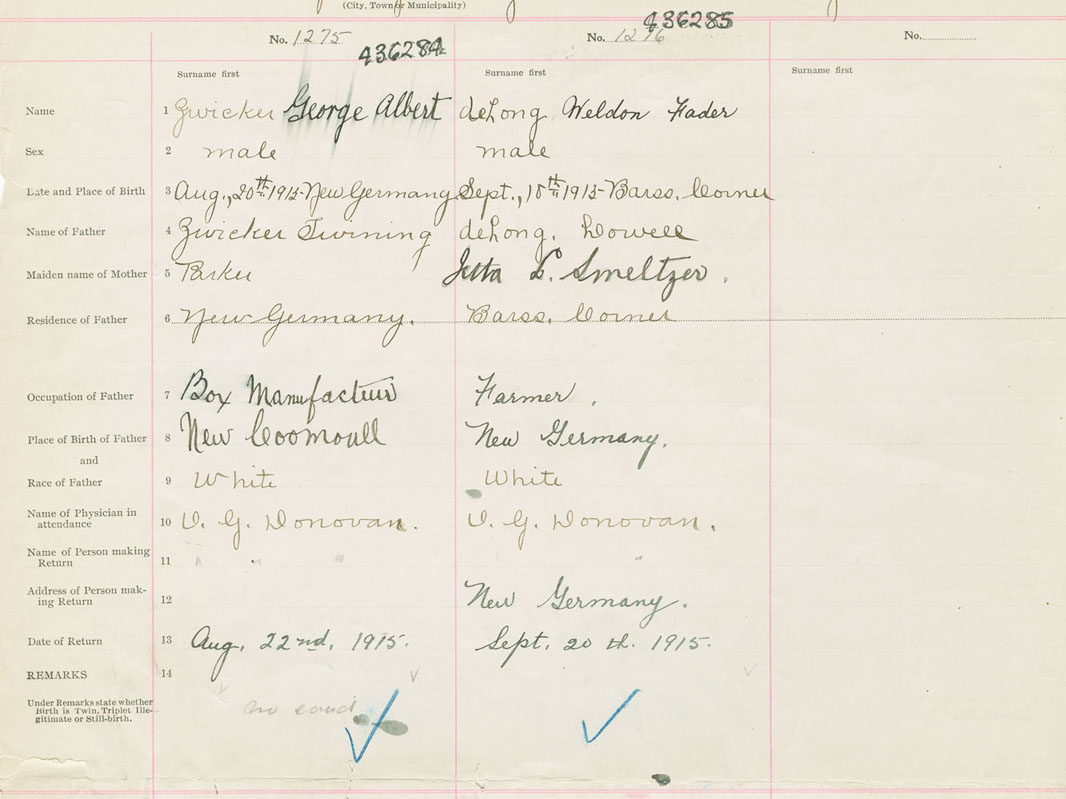 (City, Town or Municipality)
No. 1275 436284 No. 1276 436285 No.
Surname first Surname first Surname first
Name 1 Zwicker George Albert deLong Weldon Fader
Sex 2 male male
Date and Place of Birth 3 Aug., 20th 1915 - New Germany Sept., 18th 1915 - Barss. Corner
Name of Father 4 Zwicker Twining deLong. Dowell
Maiden name of Mother 5 Parker L. Smeltzer.
Residence of Father 6 New Germany. Barss. Corner
Occupation of Father 7 Box Manufactur Farmer.
Place of Birth of Father 8 New New Germany.
and
Race of Father 9 White White
Name of Physician in
attendance 10 G. Donovan. G. Donovan.
Name of Person making
Return 11 " " " "
Address of Person mak-
ing Return 12 New Germany.
Date of Return 13 Aug. 22nd. 1915. Sept. 20th. 1915.
REMARKS 14
Under Remarks state whether
Birth is Twin, Triplet Ille-
gitimate or Still-birth.
no card